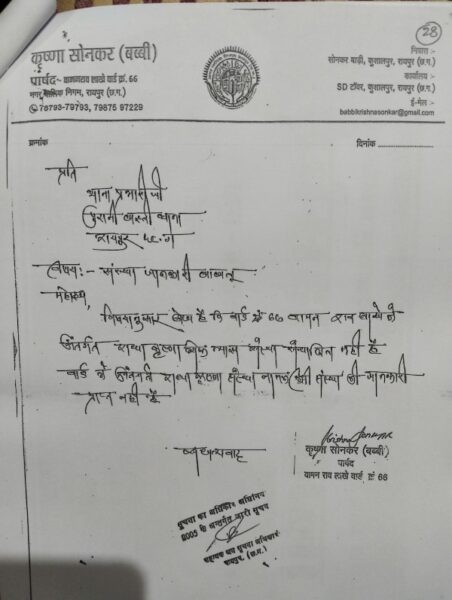 28
कृष्णा सोनकर (बब्बी)
पार्षद- वामनराव लाखे वार्ड क्रं. 66
नगर पालिक निगम, रायपुर (छ.ग.)
78793-79793, 79875 97229
निवास :-
सोनकर बाड़ी, कुशालपुर, रायपुर (छ.ग.)
कार्यालय :-
SD टॉवर, कुशालपुर, रायपुर (छ.ग.)
ई-मेल :-
babbikrishnasonkar@gmail.com
क्रमांक
दिनांक
प्रति
थाना प्रभारी जी
पुरानी बस्ती थाना
रायपुर छ.ग
विषय:- संस्था जानकारी बाबत्
महोदय,
विषयानुसार लेख है कि वार्ड क्रं 66 वामन राव लाखे के
अंतर्गत राधा कृष्णा न्यास संस्था संचालित नहीं है
वार्ड के अंतर्गत राधा कृष्णा संस्था नामक की संस्था की जानकारी
प्राप्त नहीं है
धन्यवाद
कृष्णा सोनकर (बब्बी)
पार्षद
वामन राव लाखे वार्ड क्रं. 66
सूचना का अधिकार अधिनियम
2005 के अन्तर्गत जारी सूचना
सहायक जन सूचना अधिकारी
रायपुर, (छ.ग.)